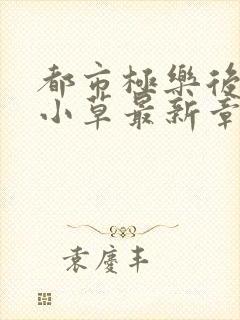 都市極樂後
小草最新章
袁慶丰